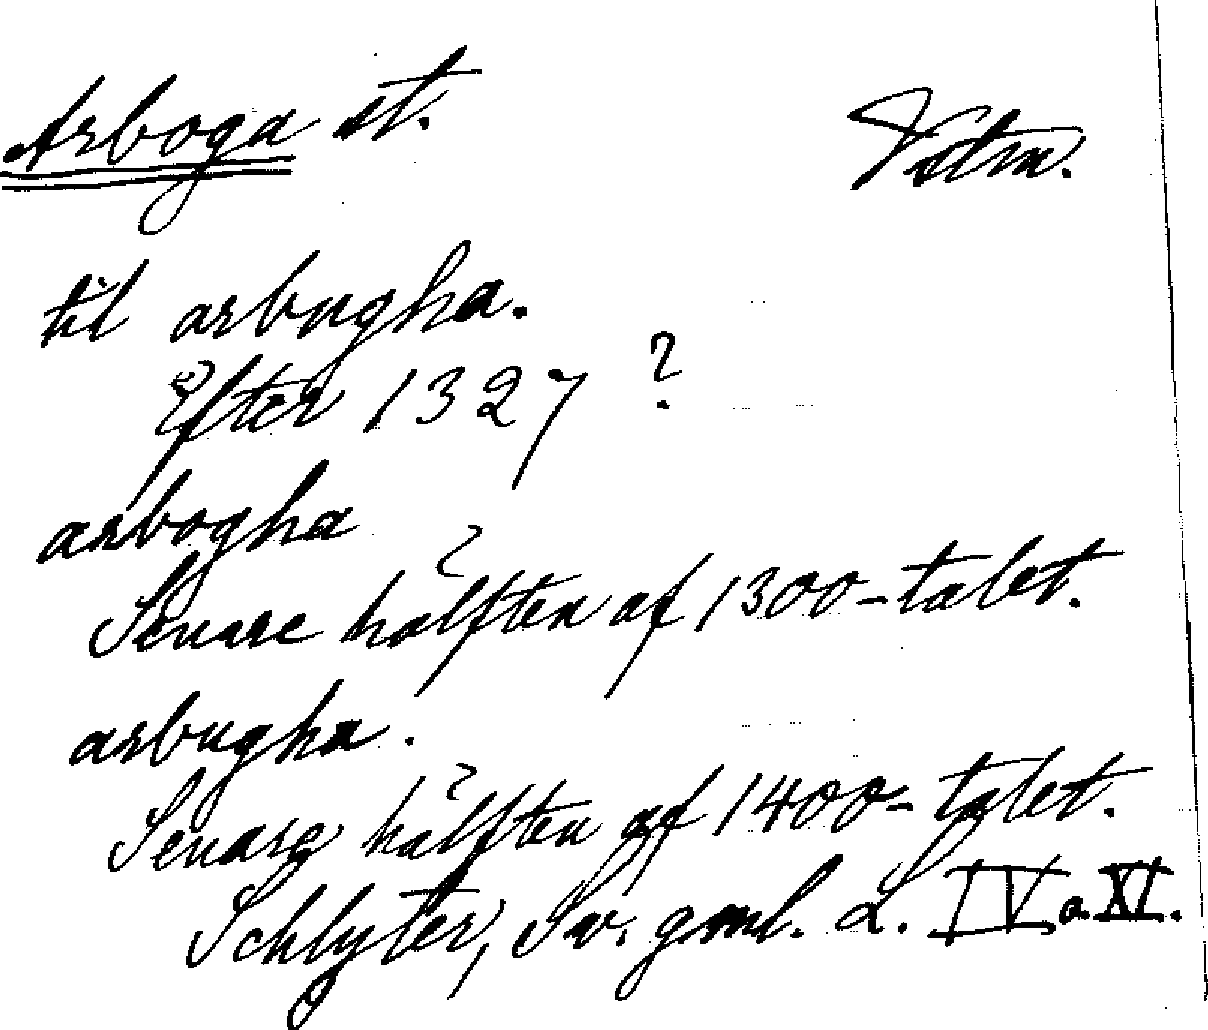 Arboga st. Vstm.
til arbugha.
Efter 1327 ?
arbogha
Senare hälften af 1300-talet.
arbugha.
Senare hälften af 1400-talet.
Schlyter, Sv. gml. L. IV o. XI.